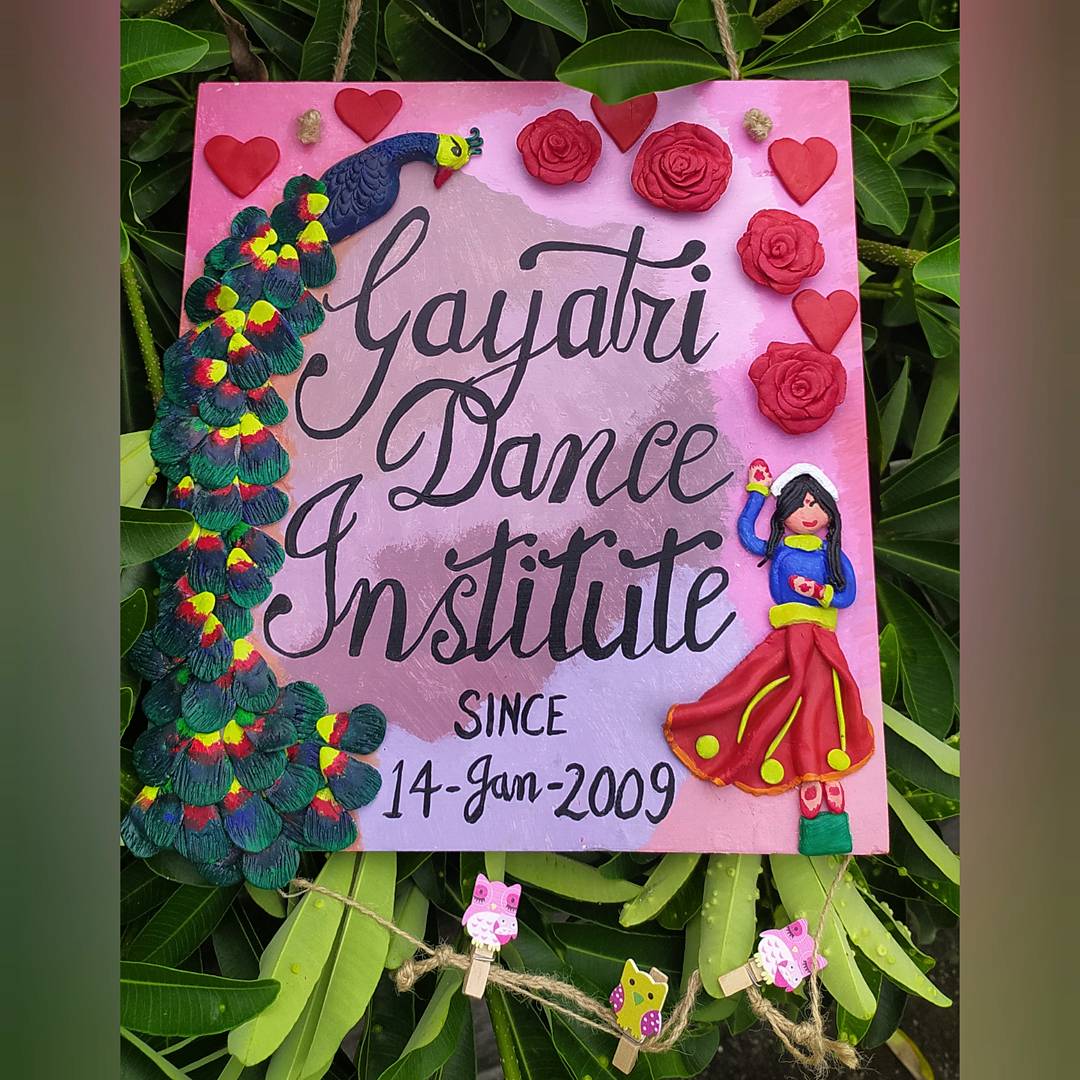 Gayatri
Dance
Institute
SINCE
14-Jan-2009